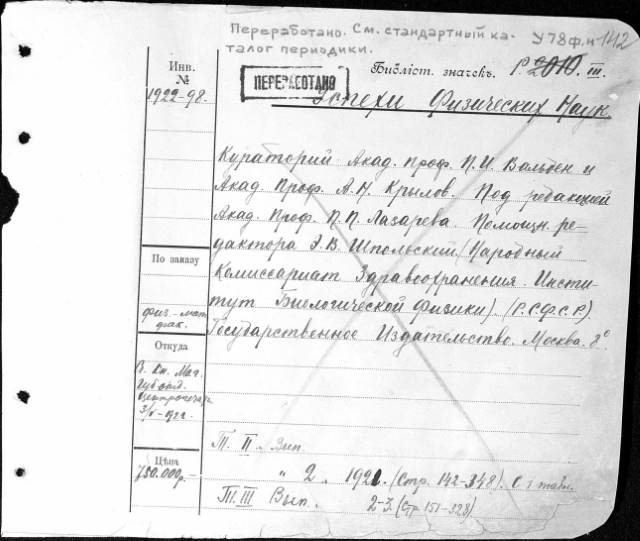 Переработано. См. стандартный ка-
талог периодики.
У78ф.н-1412
Инв.
№
Библіот. значекъ. Р. 2010. III.
ПЕРЕРАБОТАНО
1922-98.
Успехи Физических Наук.
Кураторий Акад. проф. П. И. Вальден и
Акад. Проф. А. Н. Крылов. Под редакцией
Акад. Проф. П. П. Лазарева. Помощн. ре-
дактора Э. В. Шпольский (Народный
По заказу
Комиссариат Здравоохранения. Инсти-
тут Биологической Физики) (Р.С.Ф.С.Р.)
физ.-мат.
фак.
Государственное Издательство. Москва. 8°
Откуда
В. Кн. Маг.
Центропечать
Т. II. Вып.
Цѣна
750.000р.-
" 2. 1921. (Стр. 142-348). С 1 табл.
Т. III Вып. 2-3. (Стр 151-328)